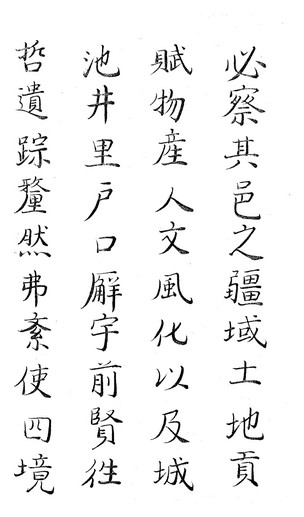 必察其邑之疆域土地貢
賦物產人文風化以及城
池井里戶口廨宇前賢往
哲遺踪釐然弗紊使四境